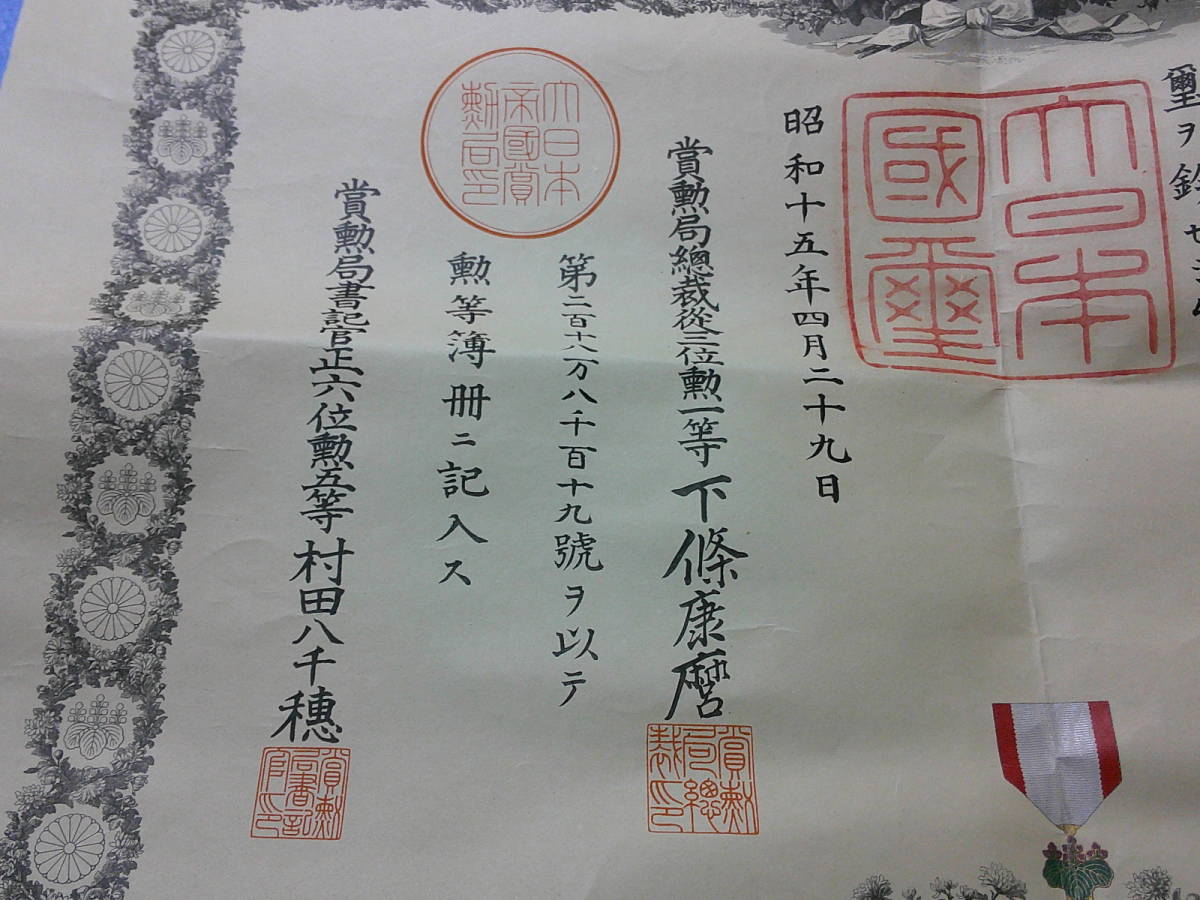 璽ヲ鈐セシム
大日本
國璽
昭和十五年四月二十九日
賞勲局總裁從三位勲一等下條康麿
賞勲局總裁印
第二百十八万八千百十九號ヲ以テ
勲等簿冊ニ記入ス
大日本
帝國賞
勲局印
賞勲局書記官正六位勲五等村田八千穂
賞勲局書記官印